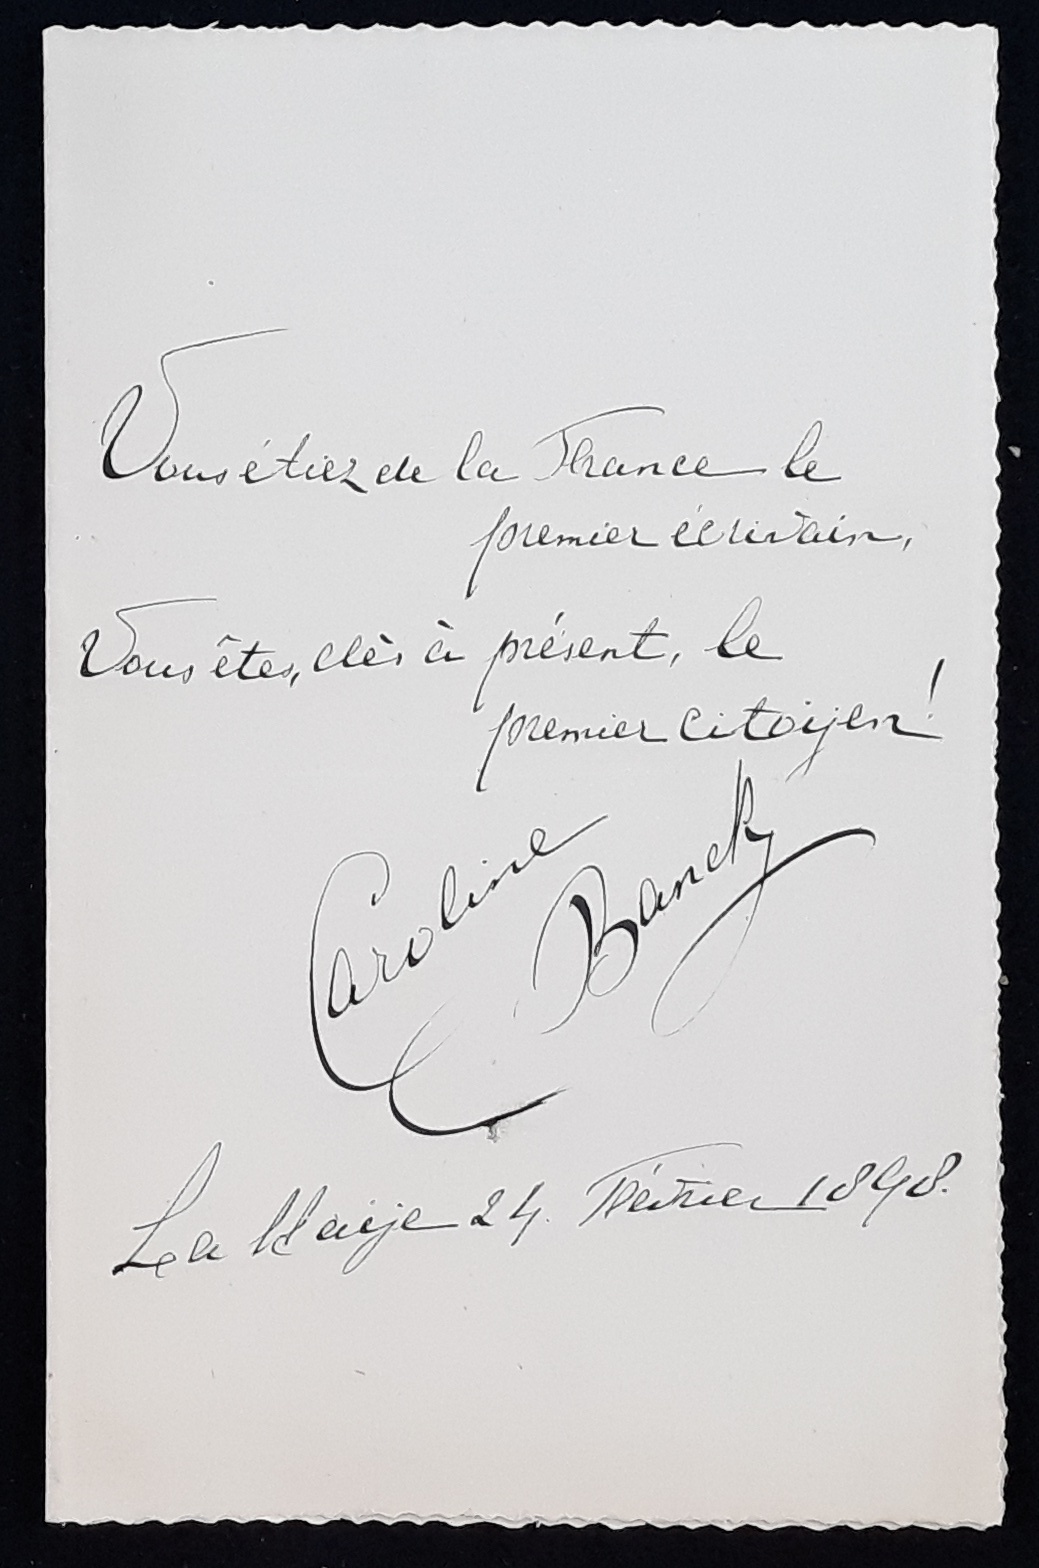 Vous étiez de la France le
premier écrivain,
Vous êtes, dès à présent, le
premier citoyen!
Caroline Banck
La Haije 24. Février 1898.